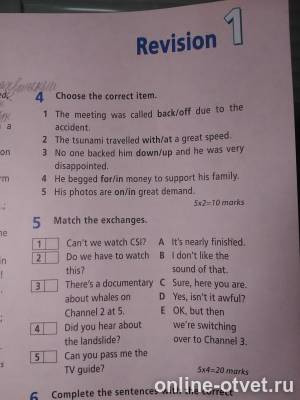 Revision 1
4 Choose the correct item.
1 The meeting was called back/off due to the
accident.
2 The tsunami travelled with/at a great speed.
3 No one backed him down/up and he was very
disappointed.
4 He begged for/in money to support his family.
5 His photos are on/in great demand.
5x2=10 marks
5 Match the exchanges.
1 Can't we watch CSI?
2 Do we have to watch
this?
3 There's a documentary
about whales on
Channel 2 at 5.
4 Did you hear about
the landslide?
5 Can you pass me the
TV guide?
A It's nearly finished.
B I don't like the
sound of that.
C Sure, here you are.
D Yes, isn't it awful?
E OK, but then
we're switching
over to Channel 3.
5x4=20 marks
6 Complete the sentences with the correct
online-otvet.ru